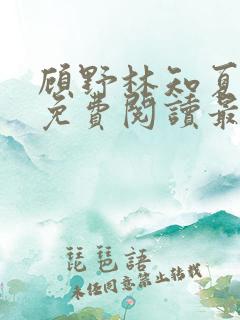 顾野林知夏
免費閱讀最
琵琶語
未经同意禁止转载